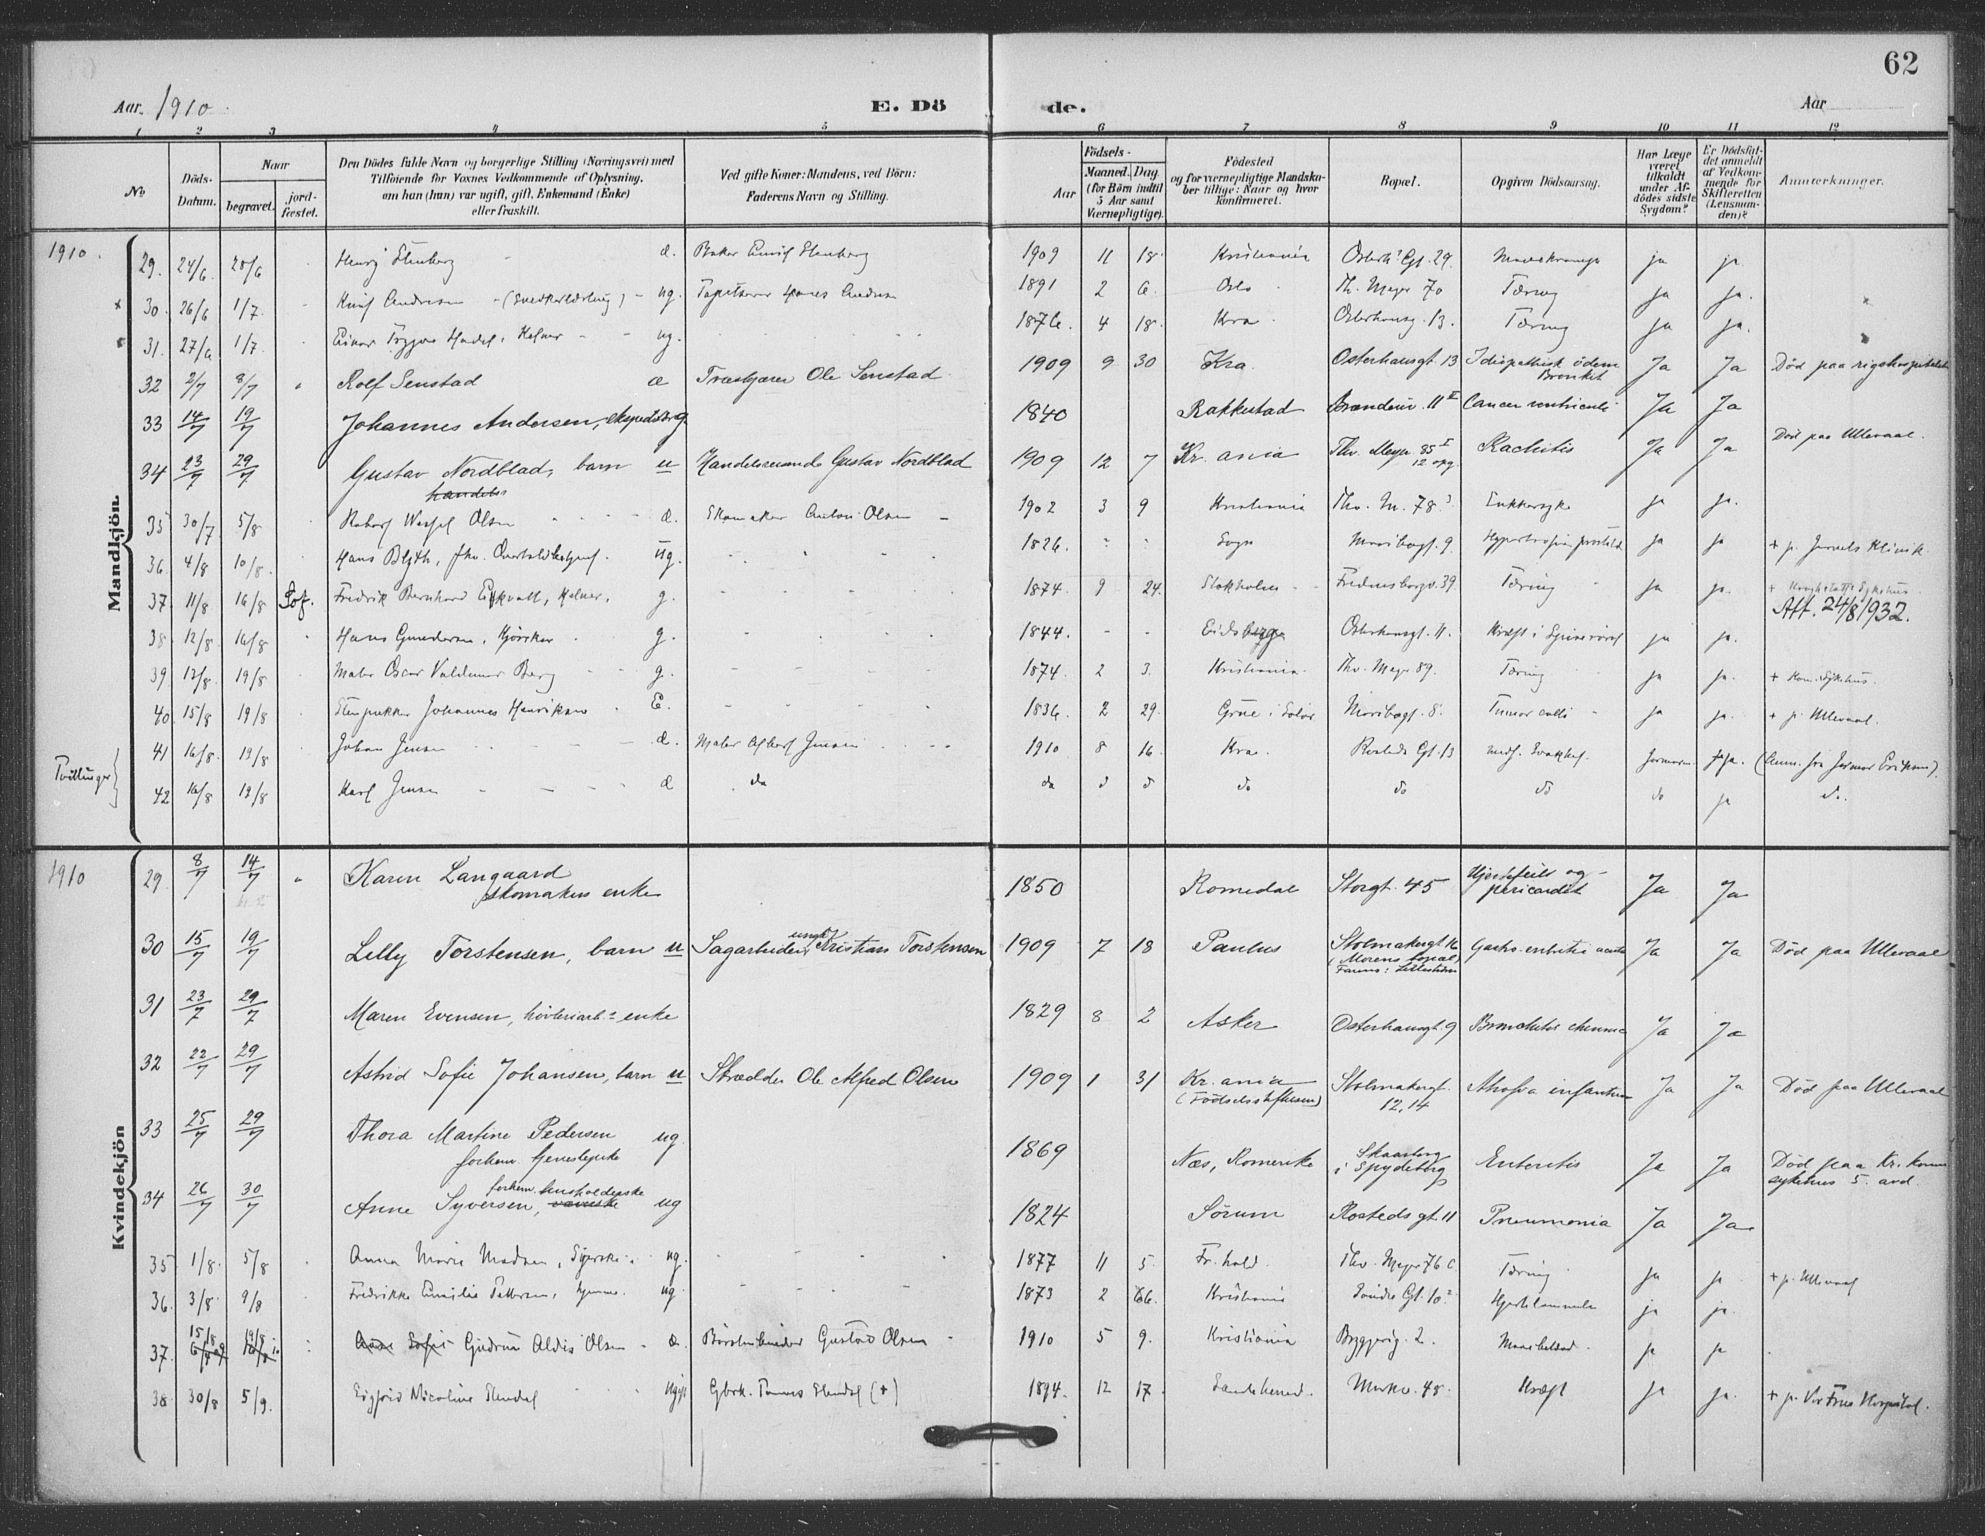 62
Aar 1910. E. Dö de. Aar
1 2 3 4 5 6 7 8 9 10 11 12
No
Döds-Datum.
Naar
begravet. jord-fæstet.
Den Dödes fulde Navn og borgerlige Stilling (Næringsvei) med
Tilföiende for Voxnes Vedkommende af Oplysning,
om han (hun) var ugift, gift, Enkemand (Enke)
eller fraskilt.
Ved gifte Koner: Mandens, ved Börn:
Faderens Navn og Stilling.
Födsels-
Aar Maaned. Dag.
(for Börn indtil
5 Aar samt
Værnepligtige).
Födested
og for værnepligtige Mandska-
ber tillige: Naar og hvor
konfirmeret.
Bopæl.
Opgiven Dödsaarsag.
Har Læge
været
tilkaldt
under Af-
dödes sidste
Sygdom?
Er Dödsfal-
det anmeldt
af Vedkom-
mende for
Skifteretten
(Lensman-
den)?
Anmerkninger.
1910.
Mandkjön
29. 24/6 28/6 Henrj Stenberg d. Baker Stenberg 1909 11 18. Kristiania Osterh. Gt. 29. ja ja.
30. 26/6 1/7. Andresen ug. 1891 2 6. Oslo Th. Meyer 70 Tæring ja ja.
31. 27/6 1/7 Einar Trygve Kelner ug. 1876. 4 18. Kra Osterhausg. 13. Tæring ja ja.
32 2/7 8/7 Rolf Senstad d Træskjærer Ole Senstad 1909 9 30 Kra. Osterhausgt. 13 Idiopathisk ödem Bronkit Ja Ja Död paa rigshospitalet
33 14/7 19/7 Johannes Andersen, g. 1840 Rakkestad 11 II Cancer ventriculi Ja Ja
34 23/7 29/7 Gustav Nordblad, barn u Handelsreisende Gustav Nordblad 1909 12 7 Kr.ania Thv. Meyer 85 I 12 opg. Rachitis Ja Ja Död paa Ullevaal.
35 30/7 5/8 Olsen d. Skomaker Anton Olsen 1902 3 9 Kristiania Thv. M. 78 3 Sukkersyke ja ja.
36. 4/8 10/8. Hans Blyth, fhv. ug. 1826. Sogn Maribogt. 9. ja ja + p. Klinik
37. 11/8 16/8 Sof. Fredrik Bernhard Kelner. g. 1874 9 24. Stokholm Fredensborgv. 39 Tæring ja ja. + Krogh
Att. 24/8 1932.
38 12/8 16/8 Hans Gundersen, Kjörsker g. 1844. Osterhausgt. 11. Kræft i Spiserøret ja ja.
39. 12/8. 19/8 Maler Oscar Valdemar Berg g. 1874 2 3. Kristiania Thv. Meyer 89. Tæring ja ja. + Kom. Sykehus.
40. 15/8 19/8 Stenpukker Johannes Henriksen E. 1836. 2 29. Grue i Solør Maribogt. 8. Tumor colli ja ja. + p. Ullevaal.
Tvillinger
41 16/8. 19/8 Johan Jensen d. Maler Jensen 1910 8 16. Kra. Rosteds Gt. 13 medf. Svakhet. Jormor ja. (Anm. fra Jormor Eriksen).
42 16/8 19/8 Karl Jensen d do do d d do do do do ja do.
1910
Kvindekjön
29. 8/7 14/7 Karen Langaard
skomakers enke 1850 Romedal Storgt. 45 Hjertefeil og pericardit Ja Ja
30 15/7 19/7 Lilly Torstensen, barn u Sagarbeider, ungk. Kristian Torstensen 1909 7 18 Paulus Stolmakergt. 16
(Morens bopæl)
Farens: Lillestrøm Gastro-enteritis acuta Ja Ja Död paa Ullevaal
31 23/7 29/7 Maren Evensen, høvleriarb.s enke 1829 8 2 Asker Osterhausgt. 9 Bronchitis Ja Ja
32 22/7 29/7 Astrid Sofie Johansen, barn u Skrædder Ole Alfred Olsen 1909 1 31 Kr.ania
(Födselsstiftelsen) Stolmakergt. 12, 14 Atrofia infantum Ja Ja Död paa Ullevaal
33 25/7 29/7 Thora Martine Pedersen ug.
forhenv. tjenestepike 1869 Næs, Romerike Skaarborg i Spydeberg Enteritis Ja Ja Död paa Kr. komm sykehus 5. avd.
34 26/7 30/7 Anne Syversen, forhenv. husholderske ug 1824 Sørum Rostedsgt. 11 Pneumonia Ja Ja
35 1/8. 5/8 Anna Marie Madsen, Syerske ug. 1877 11 5. Fr.hald. Thv. Meyer 76 c. Tæring ja ja + p. Ullevaal
36. 3/8. 9/8 Fredrikke Emilie Pettersen, hjemme. ug. 1873 2 Kristiania Søndre Gt. 10 2 Hjertelammelse ja ja.
37. 15/8 19/8 Gudrun Aldis Olsen d. Börstenbinder Gustav Olsen 1910 5 9. Kristiania Bryggerig. 2. ja ja
38 30/8 5/9. Sigfrid Nicoline Stendal ug. Gbrk. Stendal (+) 1894. 12 17. Sandeherred. Markv. 48. Kræft ja ja. + p. Vor Frues Hospital.